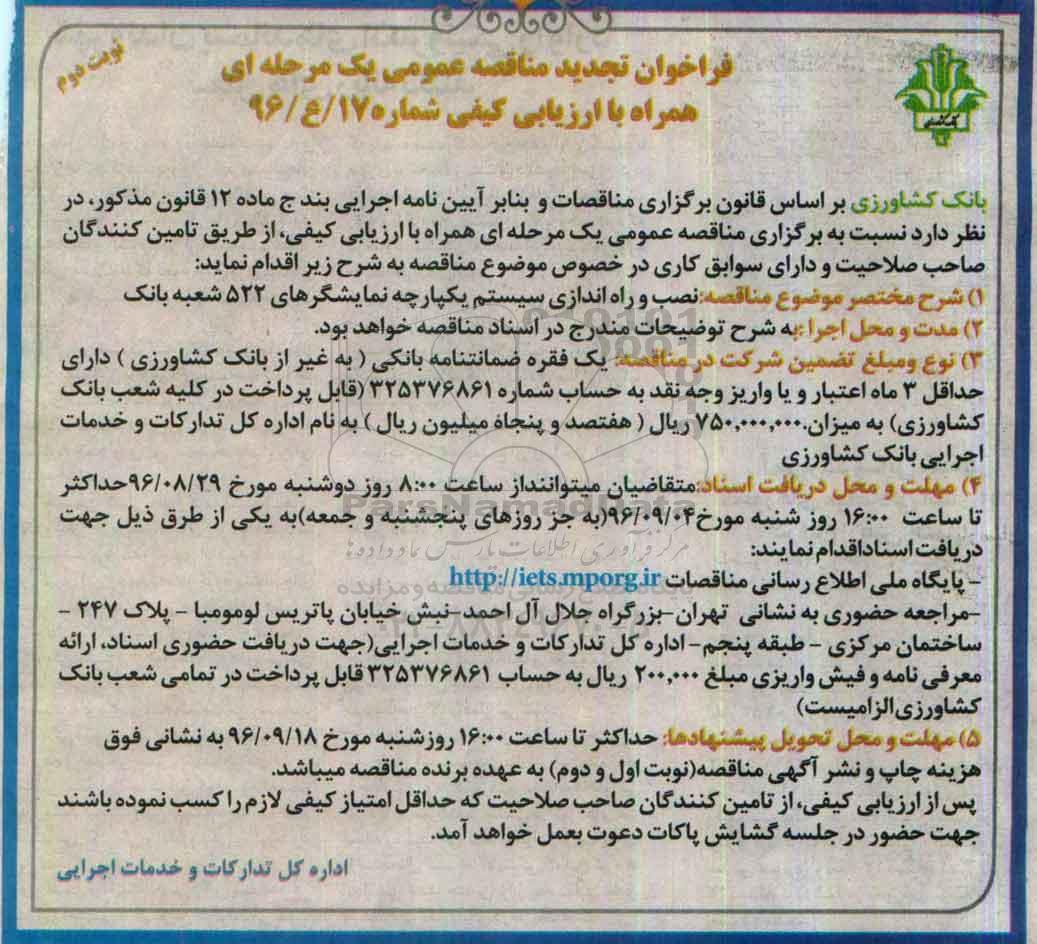 نوبت دوم
فراخوان تجدید مناقصه عمومی یک مرحله ای
همراه با ارزیابی کیفی شماره ۱۷/ع/۹۶
بانک کشاورزی
بانک کشاورزی بر اساس قانون برگزاری مناقصات و بنابر آیین نامه اجرایی بند ج ماده ۱۲ قانون مذکور، در
نظر دارد نسبت به برگزاری مناقصه عمومی یک مرحله ای همراه با ارزیابی کیفی، از طریق تامین کنندگان
صاحب صلاحیت و دارای سوابق کاری در خصوص موضوع مناقصه به شرح زیر اقدام نماید:
۱) شرح مختصر موضوع مناقصه:نصب و راه اندازی سیستم یکپارچه نمایشگرهای ۵۲۲ شعبه بانک
۲) مدت و محل اجرا :به شرح توضیحات مندرج در اسناد مناقصه خواهد بود.
۳) نوع ومبلغ تضمین شرکت در مناقصه: یک فقره ضمانتنامه بانکی ( به غیر از بانک کشاورزی ) دارای
حداقل ۳ ماه اعتبار و یا واریز وجه نقد به حساب شماره ۳۲۵۳۷۶۸۶۱ (قابل پرداخت در کلیه شعب بانک
کشاورزی) به میزان.۷۵۰,۰۰۰,۰۰۰ ریال ( هفتصد و پنجاه میلیون ریال ) به نام اداره کل تدارکات و خدمات
اجرایی بانک کشاورزی
۴) مهلت و محل دریافت اسناد:متقاضیان میتواننداز ساعت ۸:۰۰ روز دوشنبه مورخ ۹۶/۰۸/۲۹حداکثر
تا ساعت ۱۶:۰۰ روز شنبه مورخ۹۶/۰۹/۰۴(به جز روزهای پنجشنبه و جمعه)به یکی از طرق ذیل جهت
دریافت اسناداقدام نمایند:
- پایگاه ملی اطلاع رسانی مناقصات http://iets.mporg.ir
-مراجعه حضوری به نشانی تهران-بزرگراه جلال آل احمد-نبش خیابان پاتریس لومومبا - پلاک ۲۴۷ -
ساختمان مرکزی - طبقه پنجم- اداره کل تدارکات و خدمات اجرایی(جهت دریافت حضوری اسناد، ارائه
معرفی نامه و فیش واریزی مبلغ ۲۰۰,۰۰۰ ریال به حساب ۳۲۵۳۷۶۸۶۱ قابل پرداخت در تمامی شعب بانک
کشاورزی الزامیست)
۵) مهلت و محل تحویل پیشنهادها: حداکثر تا ساعت ۱۶:۰۰ روزشنبه مورخ ۹۶/۰۹/۱۸ به نشانی فوق
هزینه چاپ و نشر آگهی مناقصه(نوبت اول و دوم) به عهده برنده مناقصه میباشد.
پس از ارزیابی کیفی، از تامین کنندگان صاحب صلاحیت که حداقل امتیاز کیفی لازم را کسب نموده باشند
جهت حضور در جلسه گشایش پاکات دعوت بعمل خواهد آمد.
اداره کل تدارکات و خدمات اجرایی